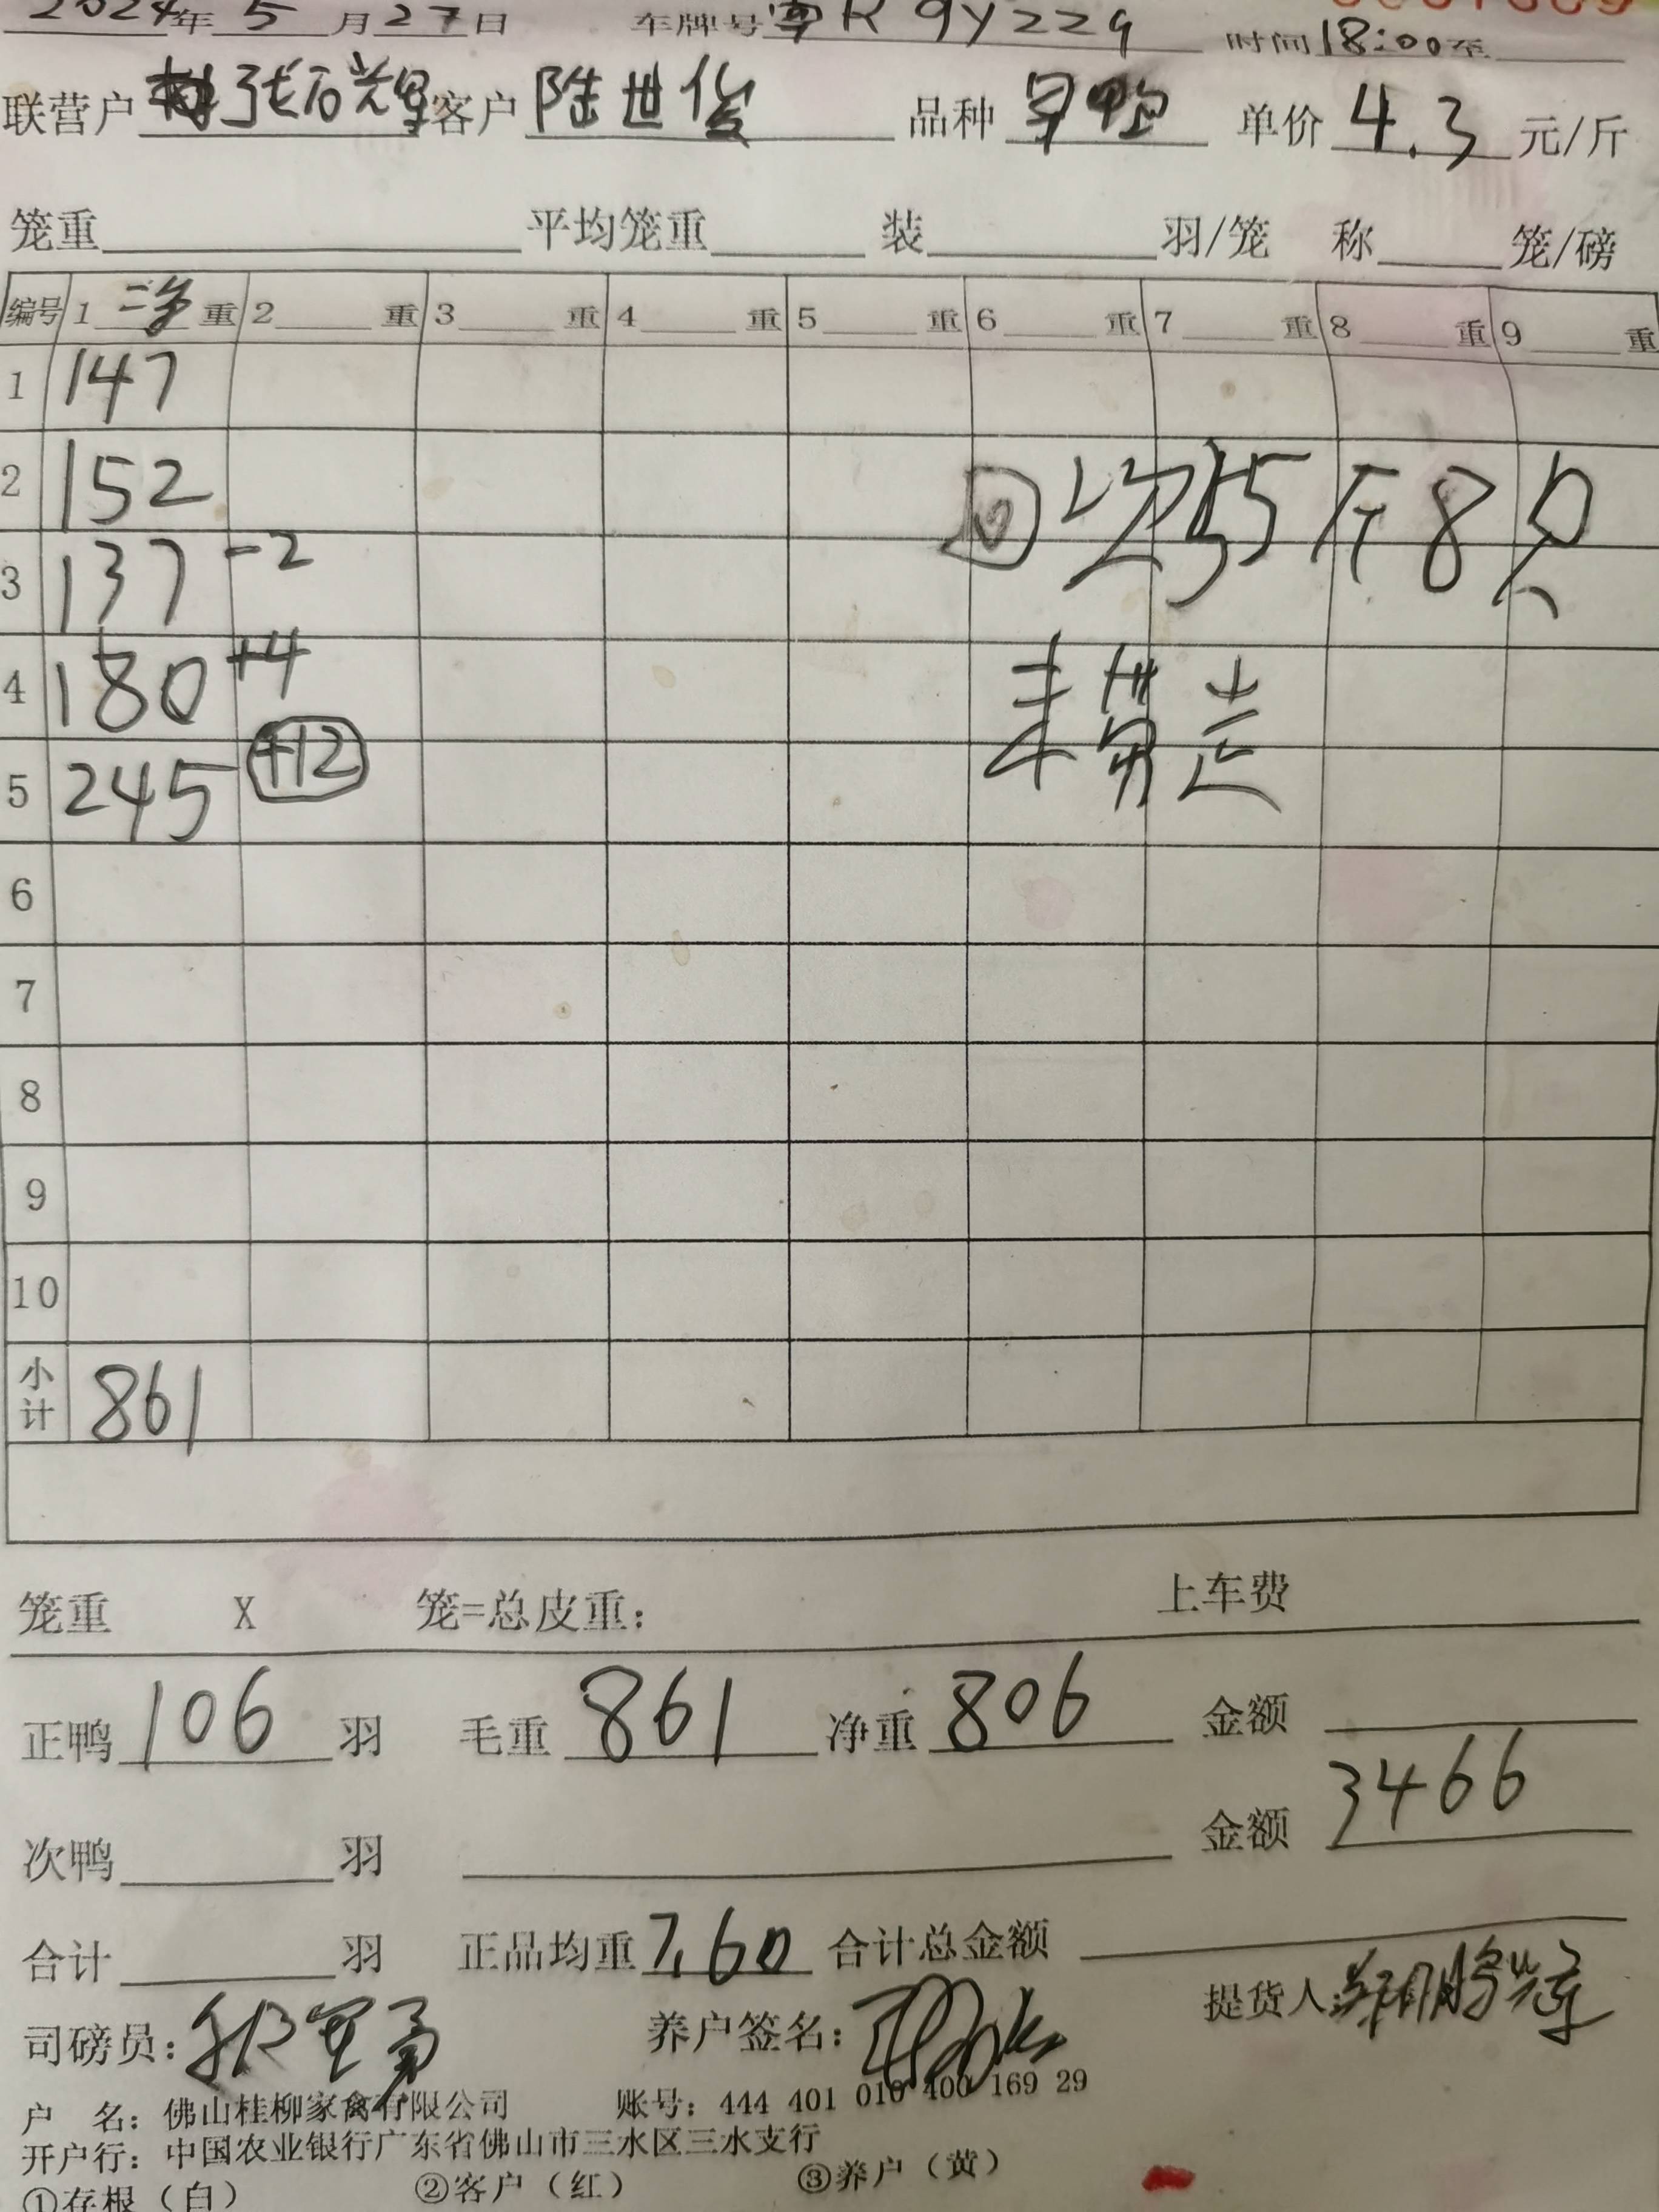 2024年 5 月 27 日 车牌号 粤R 9Y229 时间 18:00 至
联营户 张石耀 客户 陆世俊 品种 旱鸭 单价 4.3 元/斤
笼重 平均笼重 装 羽/笼 称 笼/磅
编号 1 净 重 2 重 3 重 4 重 5 重 6 重 7 重 8 重 9 重
1 147
2 152 次55斤8只
3 137 -2
4 180 +4 未带走
5 245 +12
6
7
8
9
10
小计 861
笼重 X 笼=总皮重: 上车费
正鸭 106 羽 毛重 861 净重 806 金额
次鸭 羽 金额 3466
合计 羽 正品均重 7.60 合计总金额
司磅员: 养户签名: 提货人:
户 名: 佛山桂柳家禽有限公司 账号: 444 401 010 400 169 29
开户行: 中国农业银行广东省佛山市三水区三水支行
①存根（白） ②客户（红） ③养户（黄）